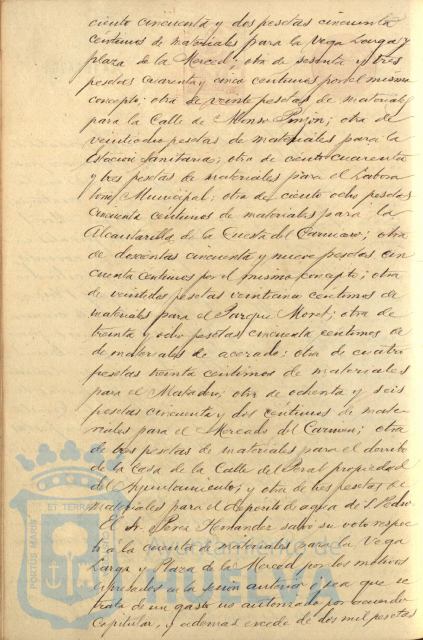 ciento cincuenta y dos pesetas cincuenta
céntimos de materiales para la Vega Larga y
plaza de la Merced; otra de sesenta y tres
pesetas cuarenta y cinco centimos por el mismo
concepto; otra de veinte pesetas de materiales
para la Calle de Alonso Ponzon; otra de
veintiocho pesetas de materiales para la
Estacion Sanitaria; otra de ciento cuarenta
y tres pesetas de materiales para el Labora
torio Municipal; otra de ciento ocho pesetas
cincuenta centimos de materiales para la
Alcantarilla de la Cuesta del Carnicero; otra
de doscientas cincuenta y nueve pesetas cin
cuenta centimos por el mismo concepto; otra
de veintidos pesetas veintiuna centimos de
materiales para el Parque Moret; otra de
treinta y ocho pesetas cincuenta centimos de
de materiales de acerado; otra de cuatro
pesetas treinta centimos de materiales
para el Matadero; otra de ochenta y seis
pesetas cincuenta y dos centimos de mate
riales para el Mercado del Carmen; otra
de tres pesetas de materiales para el derribo
de la Casa de la Calle del Peral propiedad
del Ayuntamiento; y otra de tres pesetas de
materiales para el deposito de agua de S. Pedro
El Sr. Perez Hernandez salvó su voto respec
to a la cuenta de materiales para la Vega
Larga y Plaza de la Merced por los motivos
expresados en la sesion anterior o sea que se
trata de un gasto no autorizado por acuerdo
Capitular, y ademas excede de dos mil pesetas
PORTUS MARIS
ET TERRAE
Ayuntamiento de
HUELVA